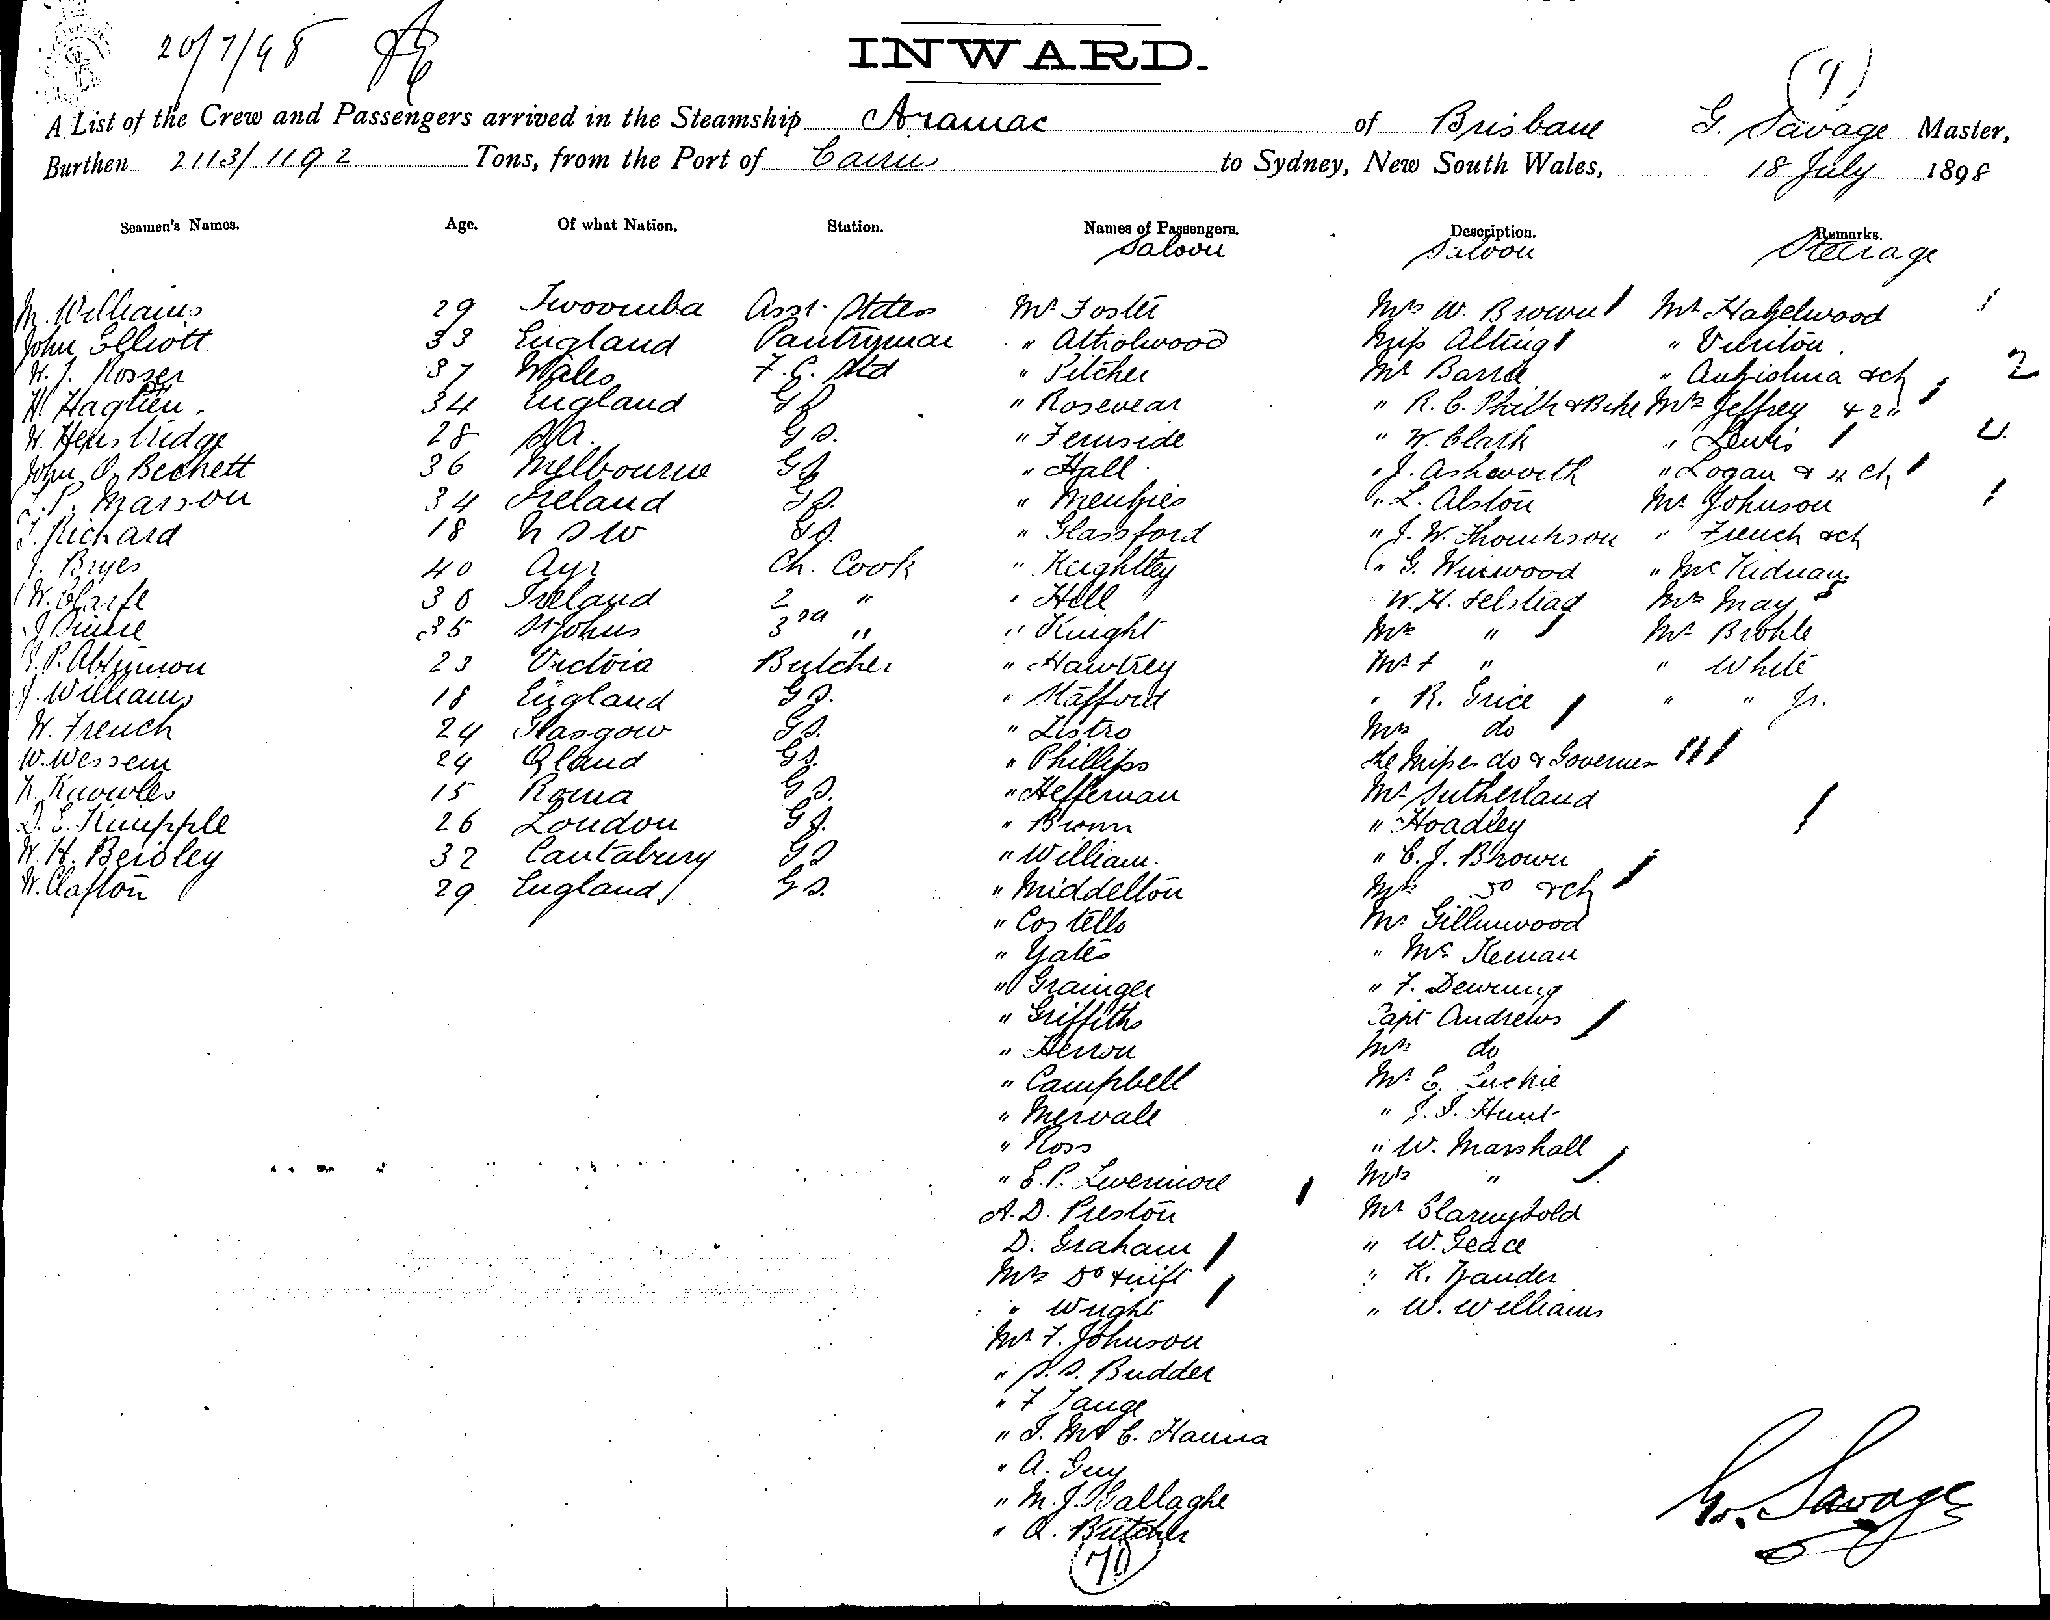 20/7/98
INWARD.
(9)
A List of the Crew and Passengers arrived in the Steamship Aramac of Brisbane G. Savage Master,
Burthen 2113/1192 Tons, from the Port of Cairns to Sydney, New South Wales, 18 July 1898
Seamen's Names. Age. Of what Nation. Station. Names of Passengers. Description. Remarks.
Saloon Saloon Steerage
M. Williams 29 Twoomba Asst. Mr Foster Mrs W. Brown Mr Hazelwood
John Elliott 33 England Pantryman " Atholwood Miss Alting "
H. J. Rosser 37 Wales F. C. Std " Pilcher Mr " & ch 2
H. 34 England GS " Rosevear " R. C. Mrs Jeffrey & 2 "
W. Hensbridge 28 S.A. G S. " Fernside " W. Clark " Lewis
John O. Beckett 36 Melbourne GS " Hall " J. Ashworth " Logan & 4 ch
L. P. Masson 34 Ireland GS. " Menzies " L. Alston Mr Johnson
T. Richard 18 N S W GS. " Glassford " J. W. " French & ch
J. Bryes 40 Ayr Ch. Cook " Keightley " G. Winwood " Mc
W. 30 Ireland 2 " " Hill W. H. Felstead Mrs May
J. 35 St Johns 3rd " " Knight Mrs " Mr
23 Victoria Butcher " Hawtrey " " White
J. Williams 18 England GS. " Stafford " R. Grice " " Jr.
W. French 24 Glasgow GS. " Listro Mrs do
W. Wessem 24 GS. " Phillips the Misses do & Governess
K. Knowles 15 Roma G S. " Heffernan Mr Sutherland
D. E. Kimpple 26 London GS. " Brown " Hoadley
W. H. Beisley 32 Cantabury G S " William. " C. J. Brown
W. Clafton 29 England G S. " Middelton Mrs Do & ch
" Costello Mr Gillinwood
" Yates " Mc
" Grainger " F.
" Griffiths Capt Andrews
" Herron Mrs do
" Campbell Mr E. Luckie
" Mervale " Hunt
" Ross " W. Marshall
" E. P. Livermore Mrs "
A. D. Preston Mr
D. Graham " W.
Mrs Do & inft " K. Zander
" Wright " W. Williams
Mr F. Johnson
" S. S. Budder
" F Tange
" Hanna
" A. Guy
" M. J. Gallaghe
" A. Butcher
70
G. Savage